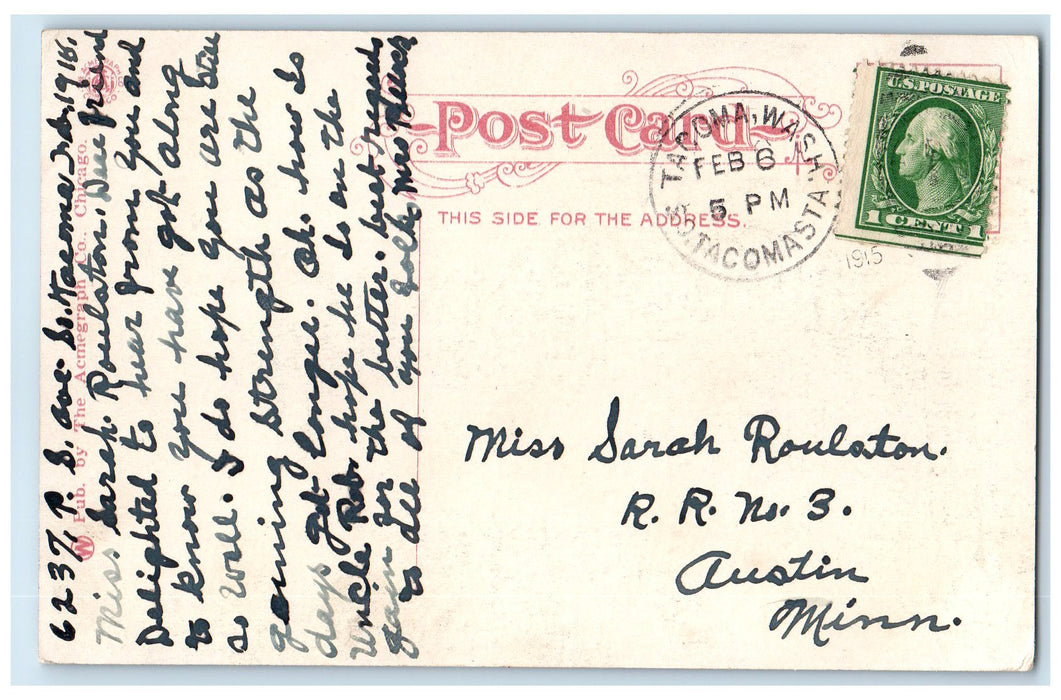 6237, P. S. ave. So. Tacoma
Miss Sarah. Roulston. Dear friend
Delighted to hear from you and
to know you have got along
so well. I do hope you are still
gaining strength as the
days get longer. Oh. how is
Uncle Rob. hope he is on the
gain for the better. best regards
to all of you folks Mrs
W Pub. by The Acmegraph Co., Chicago.
Post Card
THIS SIDE FOR THE ADDRESS.
TACOMA, WASH.
FEB 6
5 PM
SO. TACOMA STA.
1915
U.S. POSTAGE
1 CENT 1
Miss Sarah Roulston.
R. R. No. 3.
Austin
Minn.